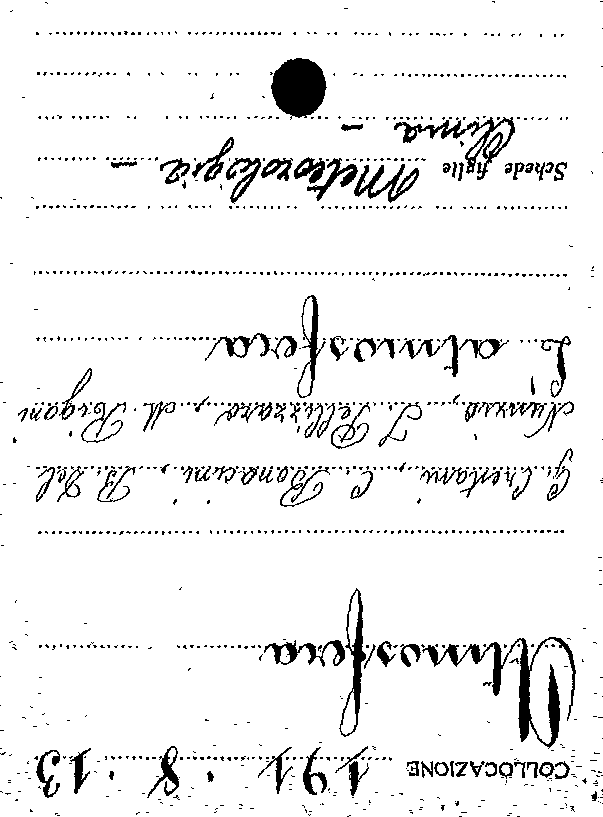 COLLOCAZIONE 191.8.13
Atmosfera
G. Crestani, C. Bonacini, B. Del
Nunzio, I. Pellizzaro, M. Bigoni
L'atmosfera
Schede figlie Meteorologia -
Clima -